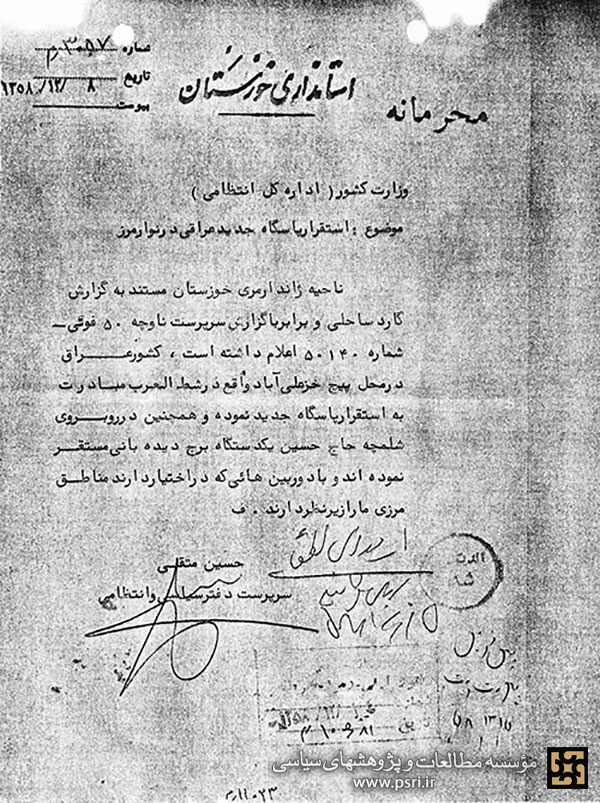 شماره ۳۰۵۷ م
تاریخ ۸ /۱۲/ ۱۳۵۸
پیوست
استانداری خوزستان
محرمانه
وزارت کشور ( اداره کل انتظامی )
موضوع : استقرارپاسگاه جدیدعراقی درنوارمرز
ناحیه ژاندارمری خوزستان مستند به گزارش
گارد ساحلی و برابرباگزارش سرپرست ناوچه ۵۰ فوتی ـ
شماره ۵۰۱۴۰ اعلام داشته است ، کشورعراق
درمحل پیچ خزعلی‌آباد واقع درشط العرب مبادرت
به استقرارپاسگاه جدید نموده و همچنین درروبروی
شلمچه حاج حسین یکدستگاه برج دیده بانی‌مستقر
نموده اند و بادوربین هائی‌که دراختیاردارند مناطق
مرزی مارازیرنظردارند . ف
حسین متقی
سرپرست دفترسیاسی وانتظامی
مؤسسه مطالعات و پژوهشهای سیاسی
www.psri.ir
۱۱۰۲۳/م